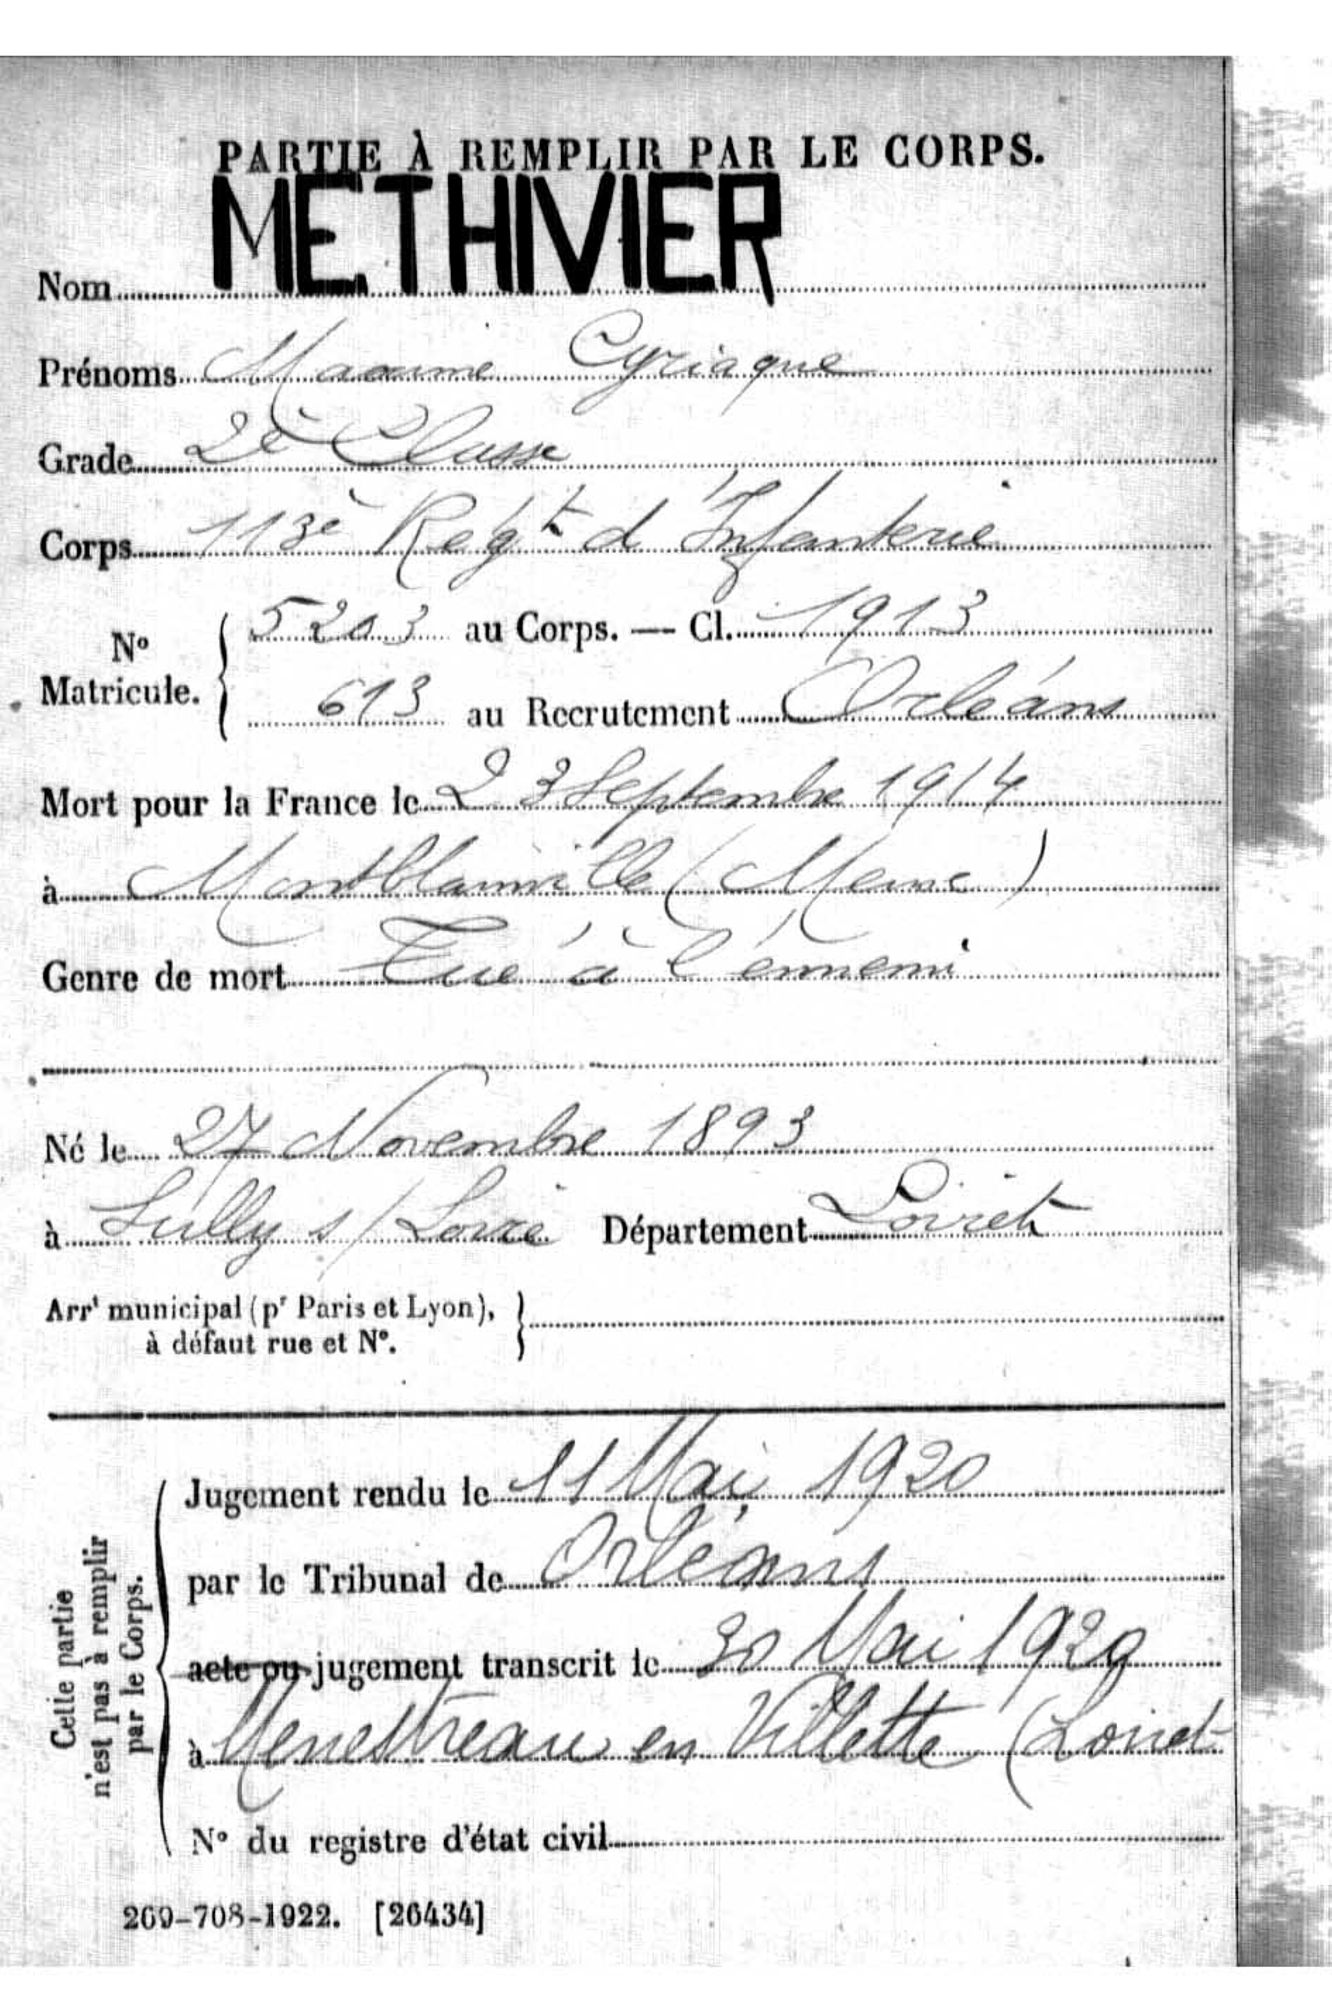 PARTIE À REMPLIR PAR LE CORPS.
Nom METHIVIER
Prénoms Maxime Cyriaque
Grade 2è Classe
Corps 113è Régt d'Infanterie
No Matricule. { 5203 au Corps. — Cl. 1913
613 au Recrutement Orléans
Mort pour la France le 23 Septembre 1914
à Montblainville (Meuse)
Genre de mort Tué à l'ennemi
Né le 27 Novembre 1893
à Sully s/ Loire Département Loiret
Arrt municipal (pr Paris et Lyon), }
à défaut rue et No.
Cette partie
n'est pas à remplir
par le Corps.
Jugement rendu le 11 Mai 1920
par le Tribunal de Orléans
acte ou jugement transcrit le 30 Mai 1920
à Menestreau en Villette (Loiret
No du registre d'état civil
269-708-1922. [26434]